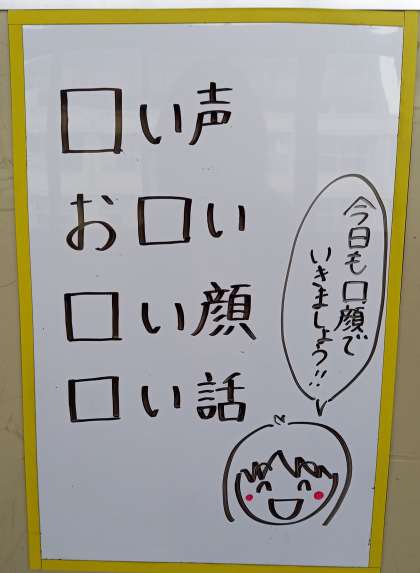 □い声
お□い
□い顔
□い話
今日も□顔で
いきましょう!!